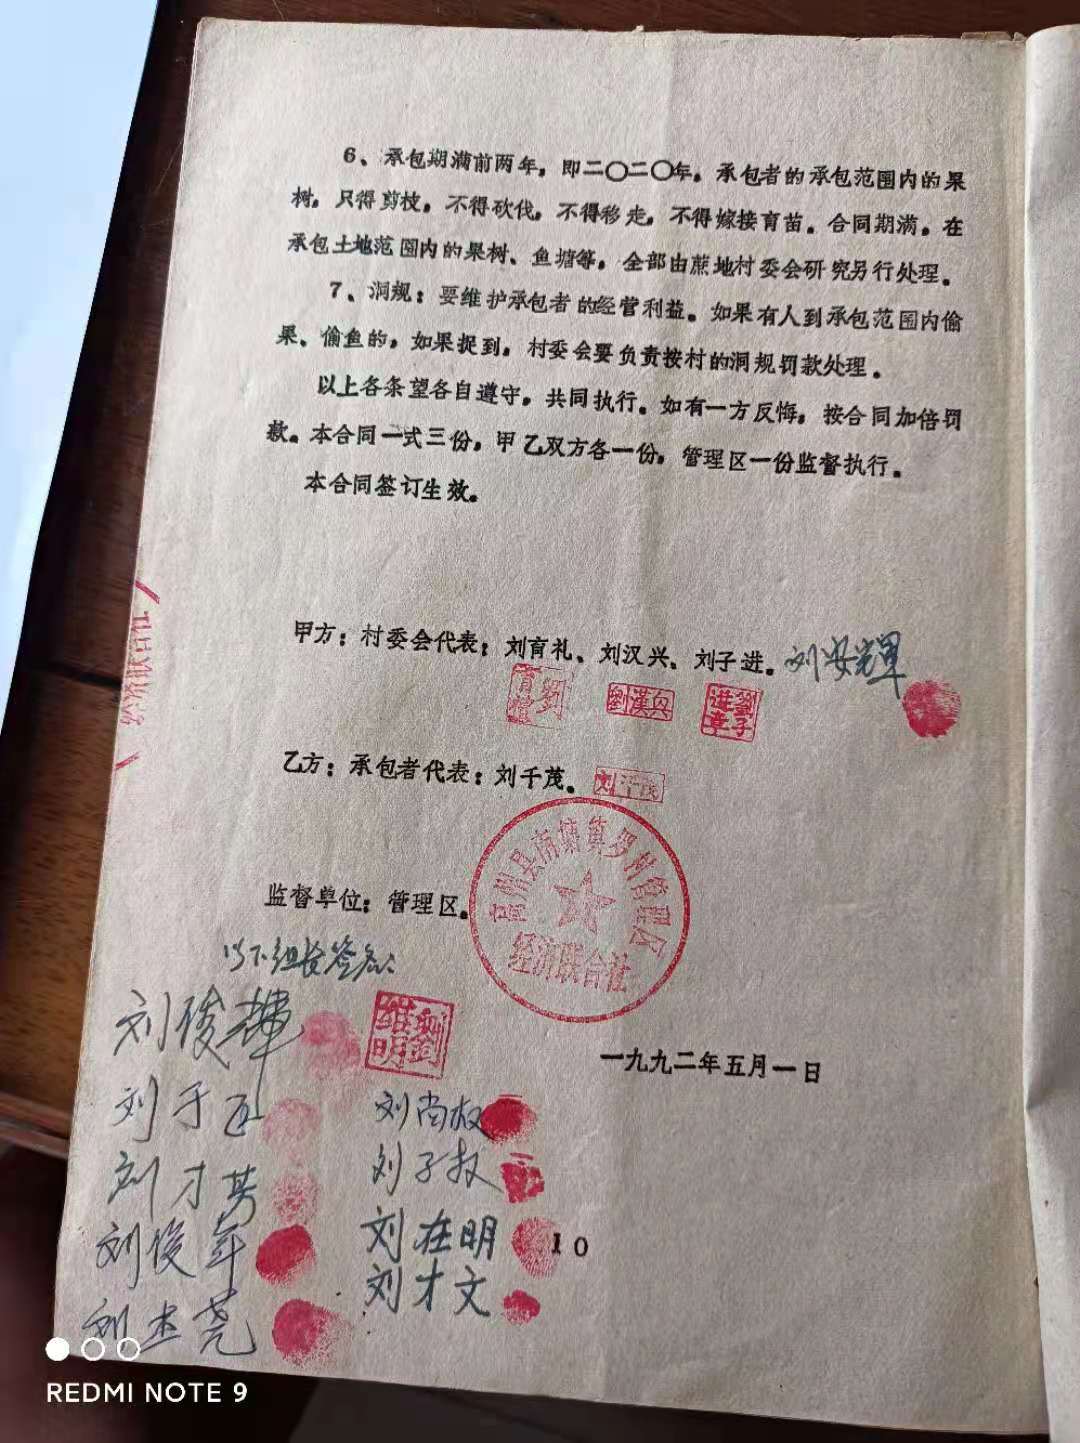 6、承包期满前两年，即二〇二〇年，承包者的承包范围内的果
树，只得剪枝，不得砍伐，不得移走，不得嫁接育苗。合同期满，在
承包土地范围内的果树、鱼塘等，全部由蔗地村委会研究另行处理。
7、洞规：要维护承包者的经营利益。如果有人到承包范围内偷
果、偷鱼的，如果捉到，村委会要负责按村的洞规罚款处理。
以上各条望各自遵守，共同执行。如有一方反悔，按合同加倍罚
款。本合同一式三份，甲乙双方各一份，管理区一份监督执行。
本合同签订生效。
经济联合社
甲方：村委会代表：刘育礼、刘汉兴、刘子进。刘安辉
劉漢興
劉子进章
乙方：承包者代表：刘千茂。刘千茂
高州县南塘镇罗州管理区
经济联合社
监督单位：管理区。
以下组长签名：
刘俊輝
劉維明
一九九二年五月一日
刘尚权
刘才英
刘子权
刘俊年
刘在明
刘才文
10
REDMI NOTE 9